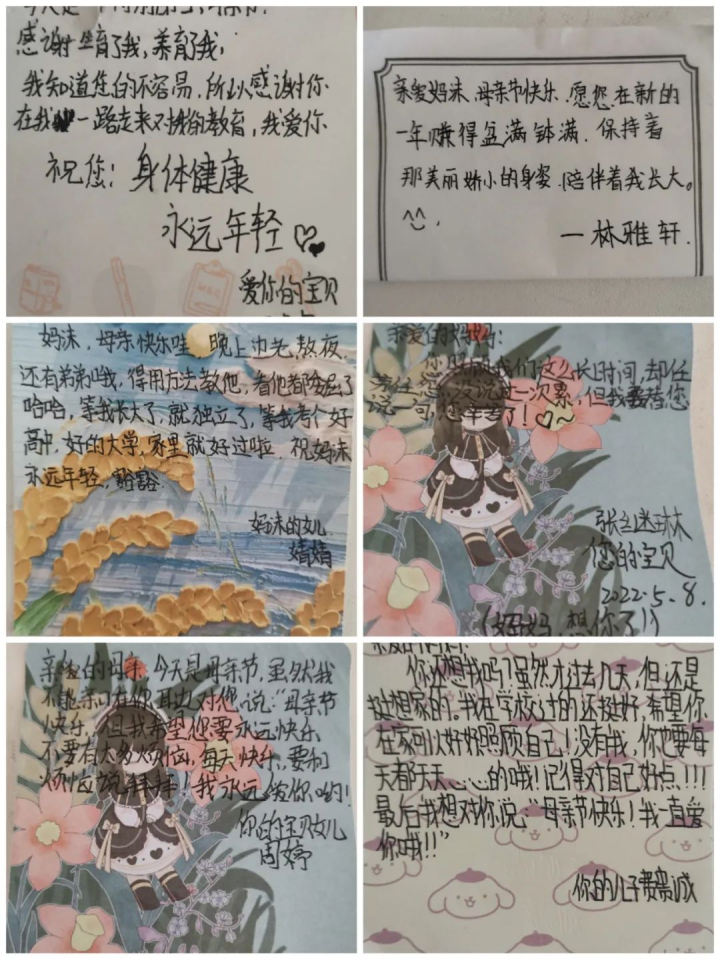 感谢生育了我，养育了我，
我知道您的不容易，所以感谢你
在我一路走来对我的教育，我爱你
祝您：身体健康
永远年轻
爱你的宝贝
亲爱妈妹，母亲节快乐．愿您在新的
一年赚得盆满钵满．保持着
那美丽娇小的身姿．陪伴着我长大。
^^．
—林雅轩．
妈妹，母亲快乐哇．晚上边老熬夜．
还有弟弟哦，得用方法教他，
哈哈，等我长大了，就独立了，等我考个好
高中，好的大学，家里就好过啦．祝妈妹
永远年轻．豁豁．
妈妹的女儿
婧婧
亲爱的妈妈：
我们这么长时间，却任
没说过一次累，但我要替您
说一句，您辛苦了！
您的宝贝
2022.5.8.
(妈妈，想你了！)
亲爱的母亲，今天是母亲节，虽然我
不能亲口在你耳边对您说：“母亲节
快乐”，但我希望您要永远快乐
不要有太多烦恼，每天快乐，要和
烦恼说拜拜！我永远爱你哟！
你的宝贝女儿
周婷
你还想我吗？虽然才过去几天，但还是
挺想家的。我在学校过的还挺好，希望你
在家可以好好照顾自己！没有我，你也要每
天都开开心心的哦！记得对自己好点！！！
最后我想对你说：“母亲节快乐！我一直爱
你哦！！”
你的儿子